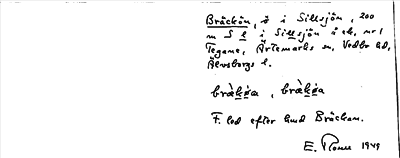 Bräckön, ö i Sillsjön, 200
m S l i Sillsjön å ek, nr 1
Tegane, Ärtemarks sn, Vedbo hd,
Älvsborgs l.
bràkøa, bràkøa
F. led efter lund Bräckan.
E. 1949